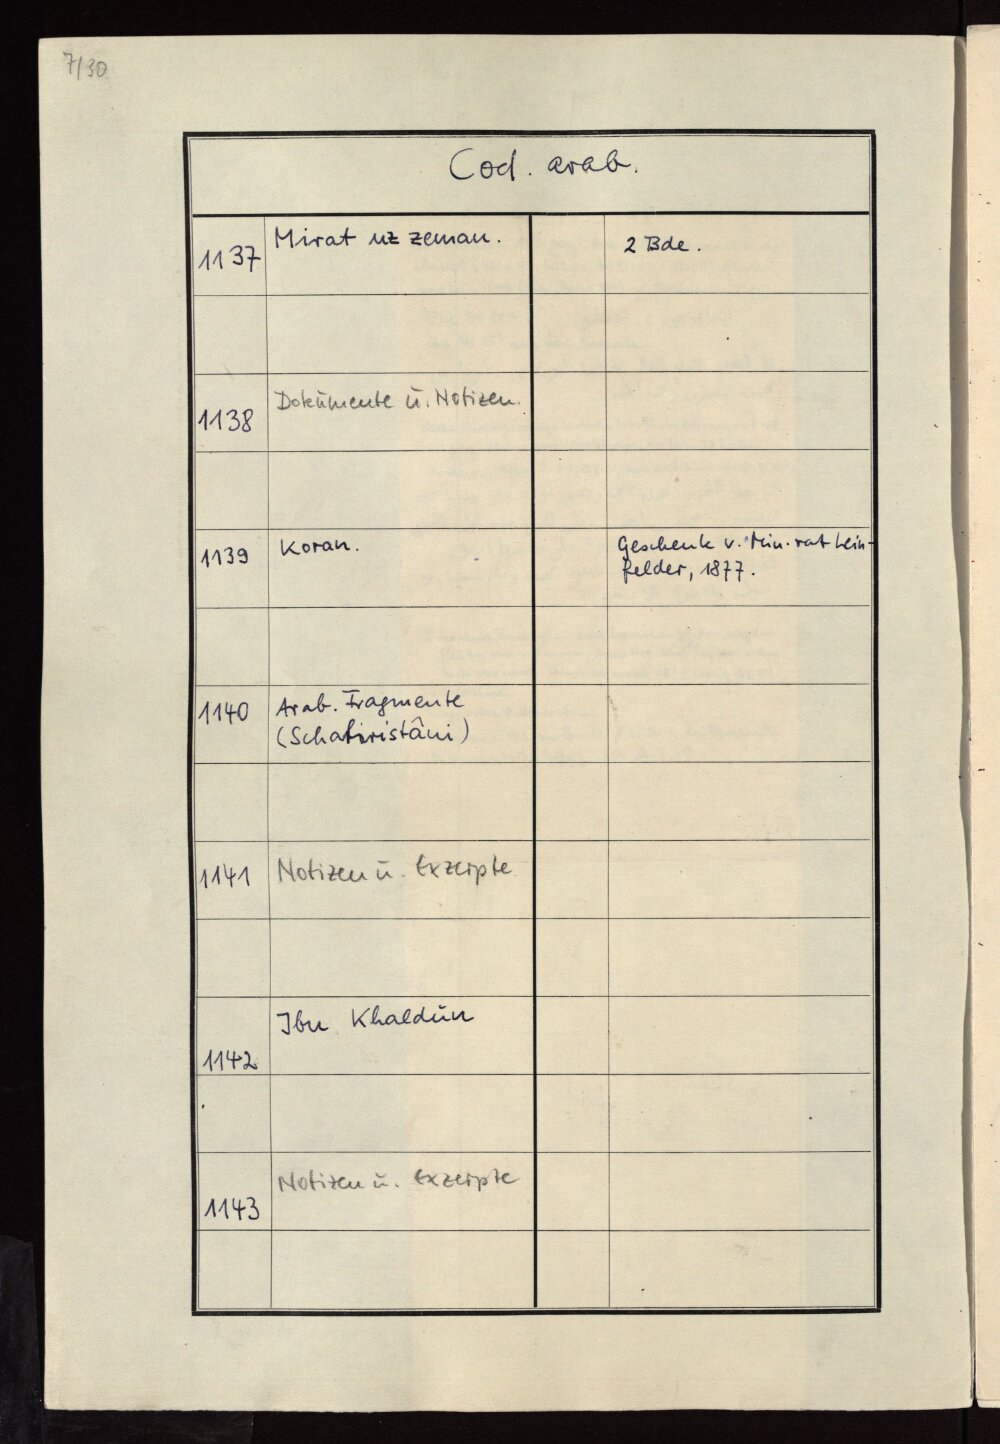 7/30
Cod. arab.
1137 Mirat uz zeman. 2 Bde.
1138 Dokumente u. Notizen.
1139 Koran. Geschenk v. Min.rat Lein-
felder, 1877.
1140 Arab. Fragmente
(Schahristâni)
1141 Notizen u. Exzerpte
Ibn Khaldūn
1142
Notizen u. Exzerpte
1143